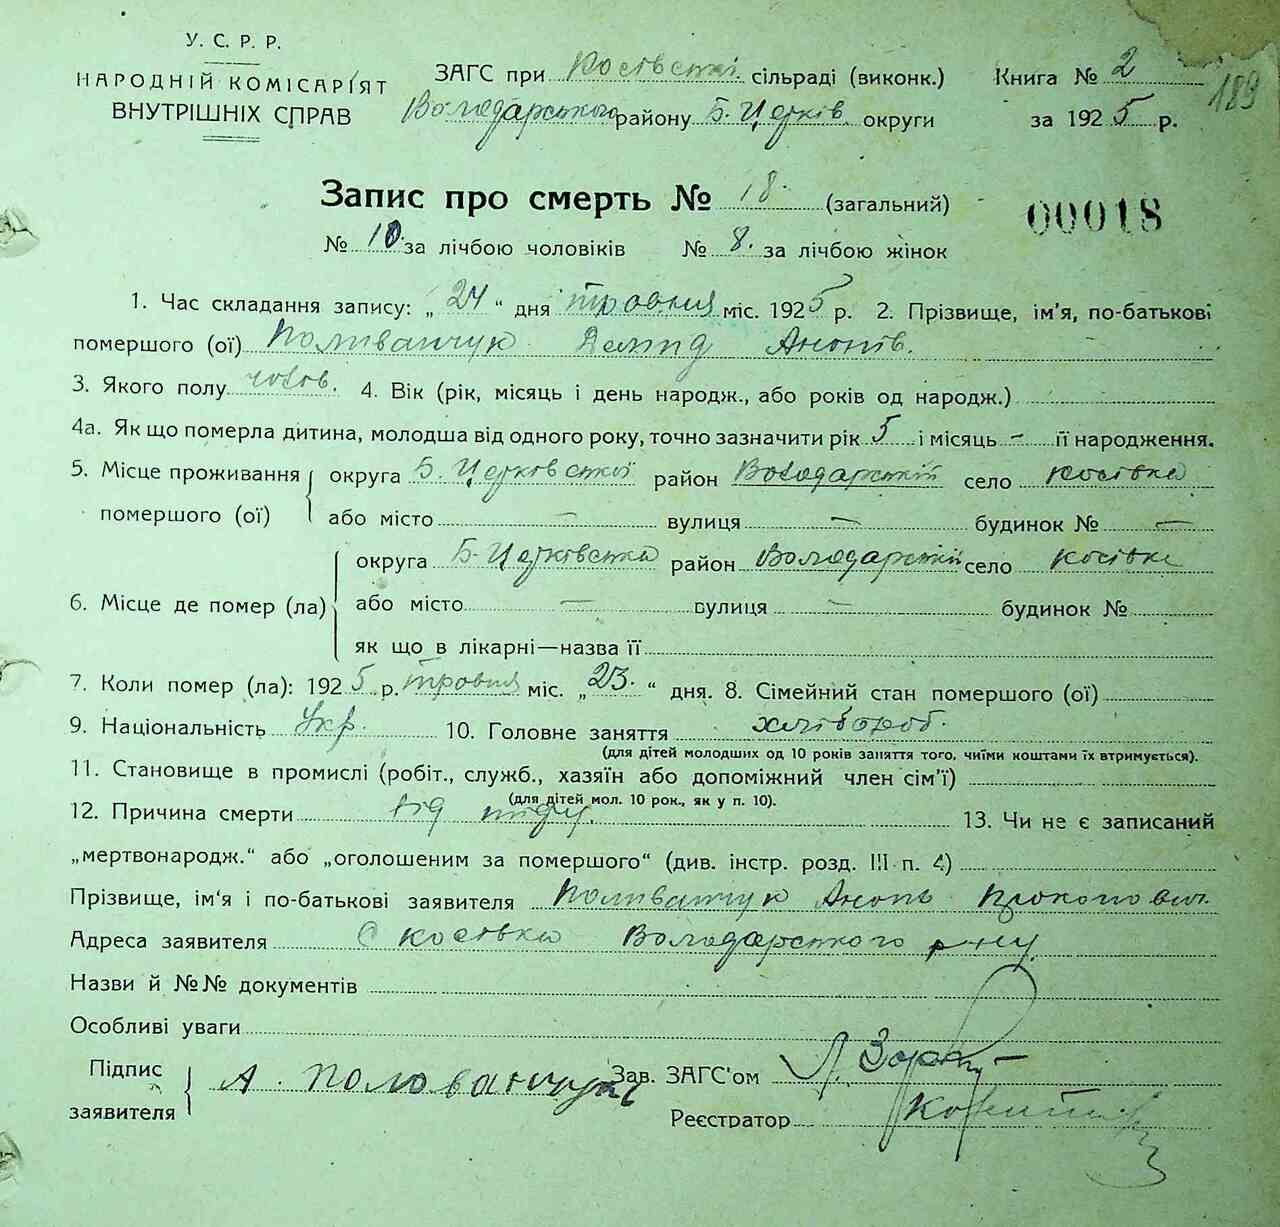 У. С. Р. Р.
НАРОДНІЙ КОМІСАРІЯТ
ВНУТРІШНІХ СПРАВ
ЗАГС при Косівській сільраді (виконк.) Книга № 2
189
Володарського району Б-Церків. округи за 1925 р.
Запис про смерть № 18. (загальний)
00018
№ 10. за лічбою чоловіків № 8. за лічбою жінок
1. Час складання запису: „24“ дня травня міс. 1925 р. 2. Прізвище, ім'я, по-батькові
помершого (ої) Поливанчук Демид Анопів.
3. Якого полу чолов. 4. Вік (рік, місяць і день народж., або років од народж.)
4а. Як що померла дитина, молодша від одного року, точно зазначити рік 5 і місяць — її народження.
5. Місце проживання округа Б. Церківської район Володарский село Косівка
помершого (ої) або місто — вулиця — будинок № —
округа Б-Церківська район Володарский село Косівка
6. Місце де помер (ла) або місто — вулиця — будинок №
як що в лікарні—назва її
7. Коли помер (ла): 1925 р. травня міс. „23.“ дня. 8. Сімейний стан помершого (ої)
9. Національність Укр. 10. Головне заняття хлібороб.
(для дітей молодших од 10 років заняття того, чиїми коштами їх втримується).
11. Становище в промислі (робіт., служб., хазяїн або допоміжний член сім'ї)
(для дітей мол. 10 рок., як у п. 10).
12. Причина смерти від 13. Чи не є записаний
„мертвонародж.“ або „оголошеним за помершого“ (див. інстр. розд. III п. 4)
Прізвище, ім'я і по-батькові заявителя Поливанчук Анопь Прокопович.
Адреса заявителя С Косівка Володарського р-ну
Назви й №№ документів
Особливі уваги
Підпис
заявителя А. Полованчук Зав. ЗАГС'ом
Реєстратор